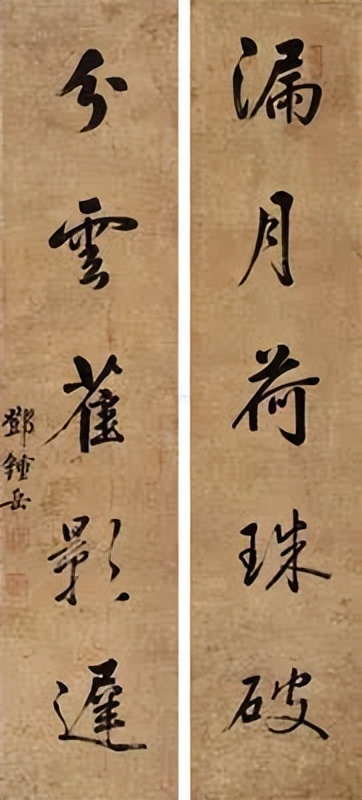 漏月荷珠破
分雲舊影遲
鄧鍾岳